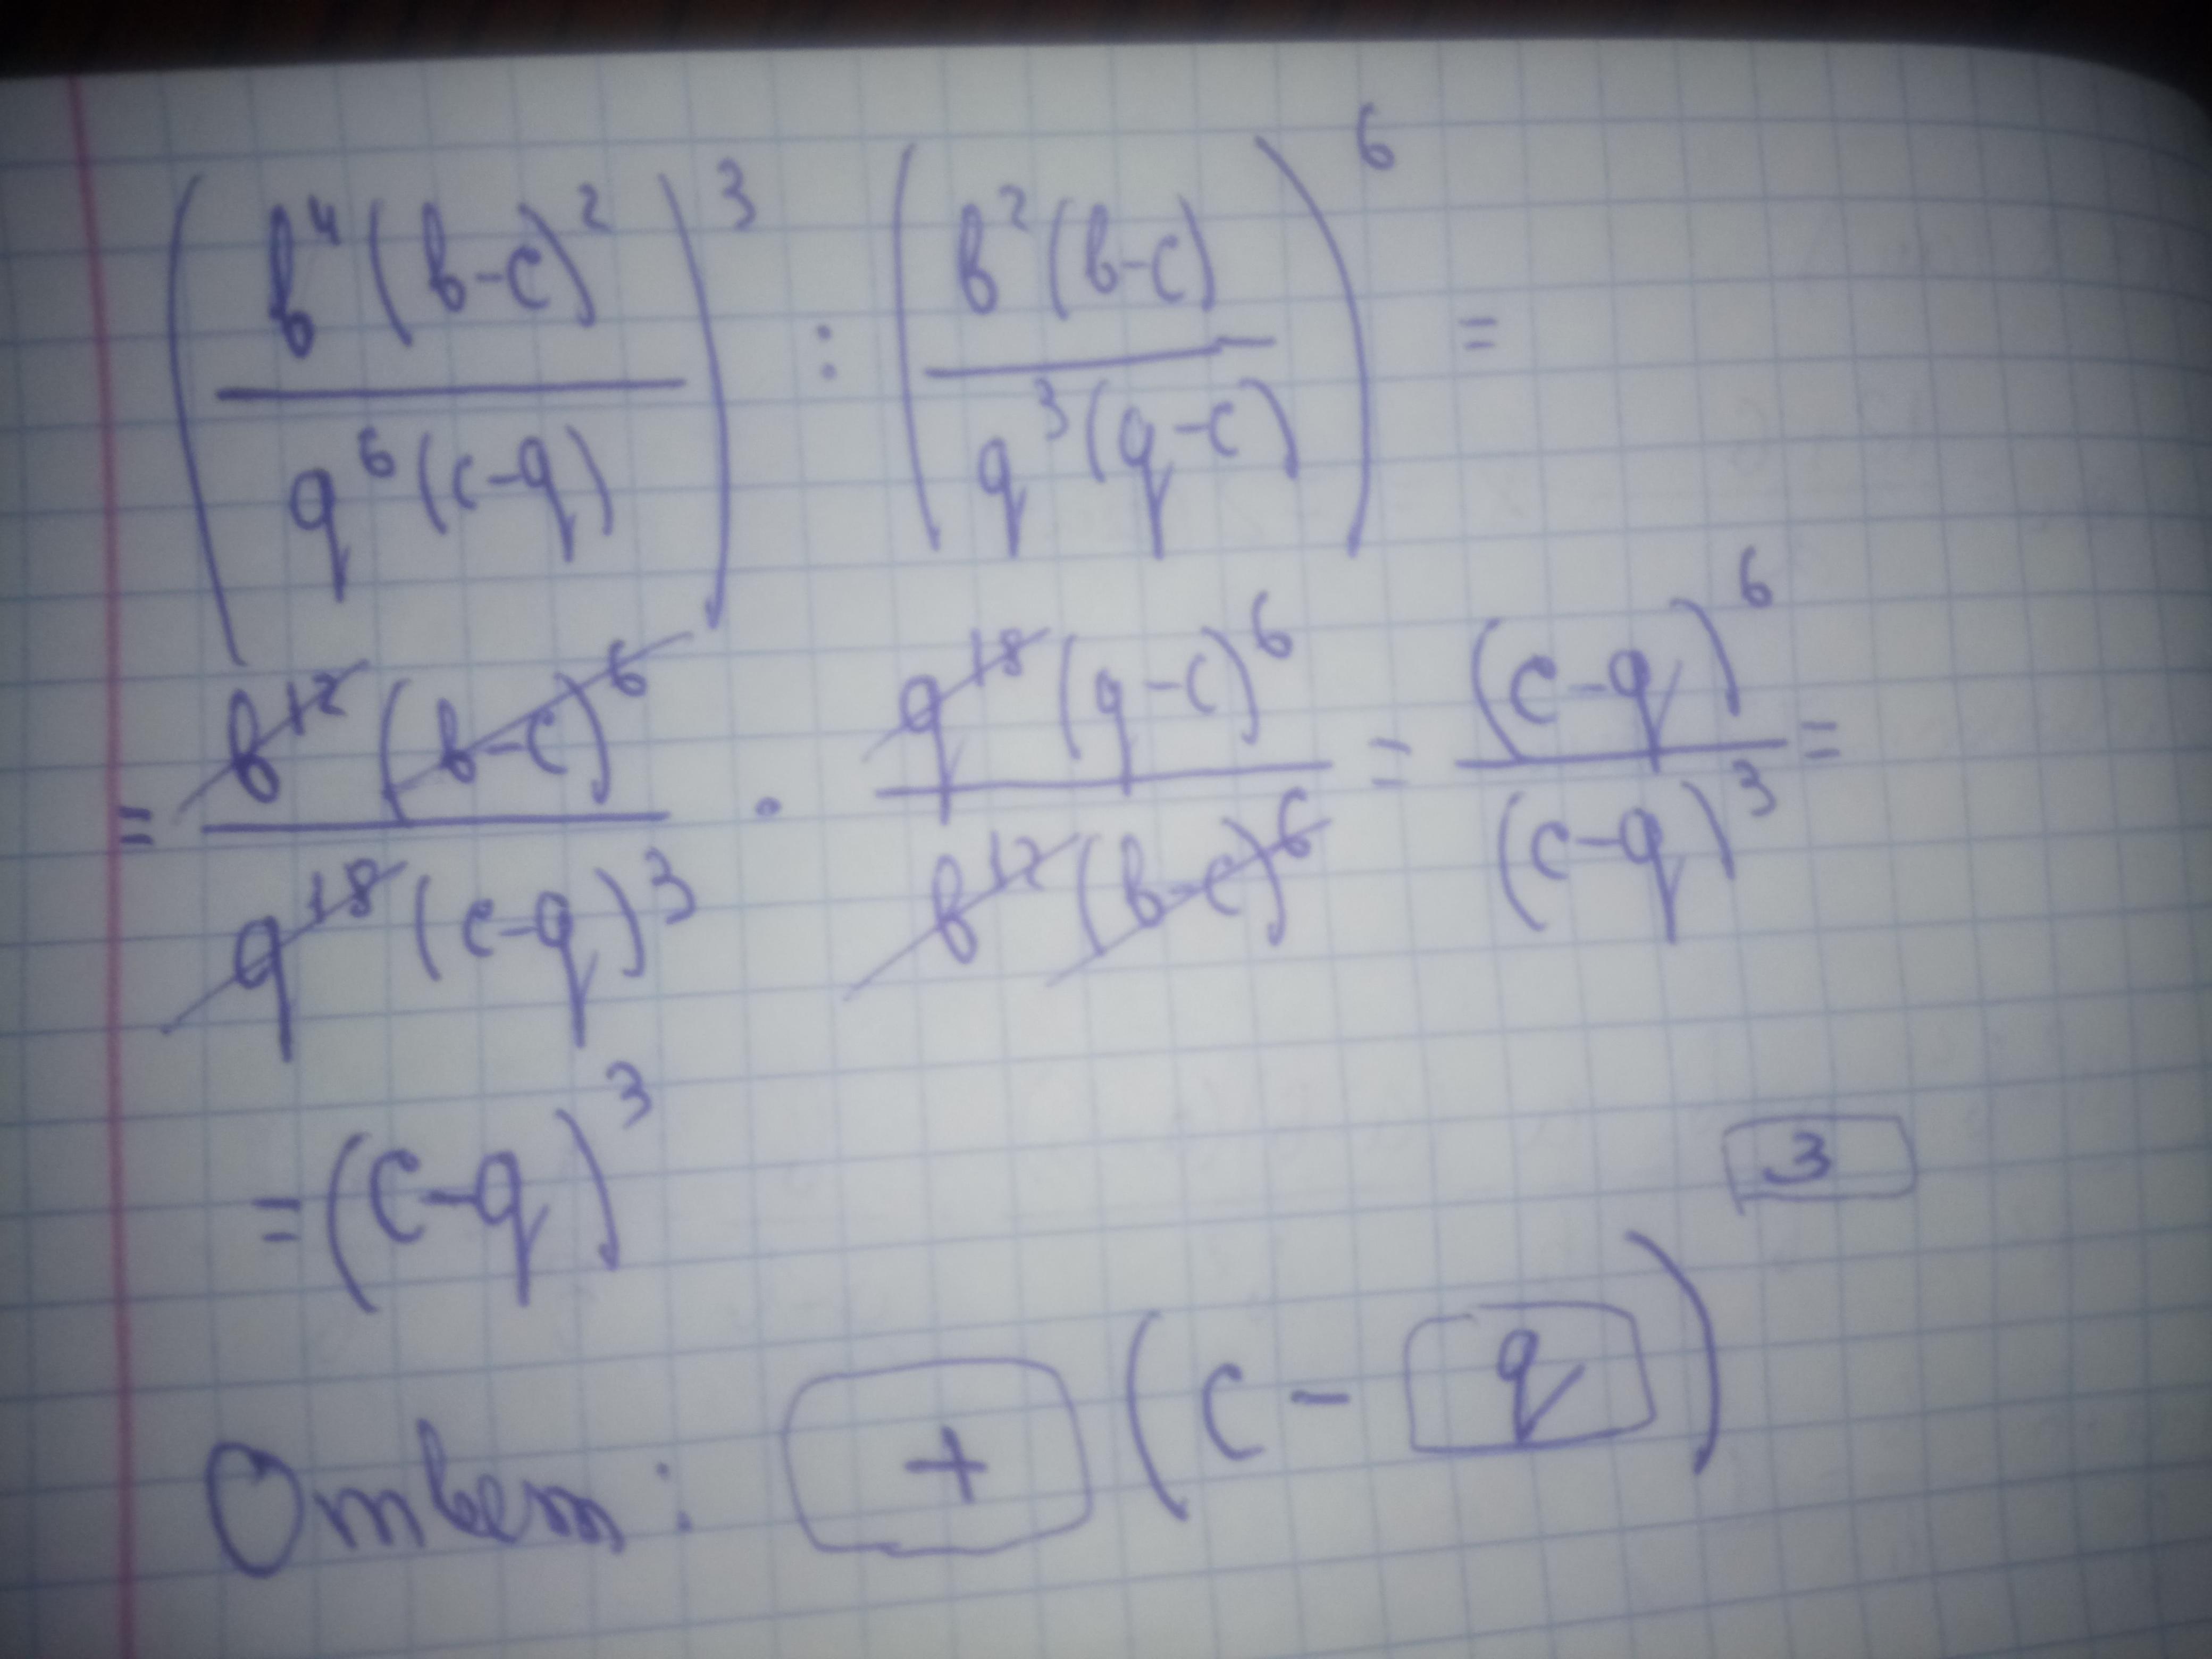 (b⁴(b-c)² / q⁶(c-q))³ : (b²(b-c) / q³(q-c))⁶ =
= b¹²(b-c)⁶ / q¹⁸(c-q)³ · q¹⁸(q-c)⁶ / b¹²(b-c)⁶ = (c-q)⁶ / (c-q)³ =
= (c-q)³
Ответ: + (c - q)³